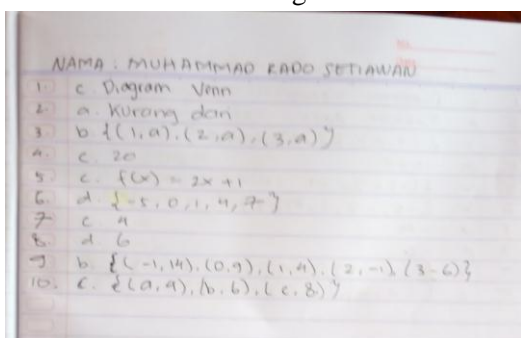 NAMA : MUHAMMAD RADO SETIAWAN
1 c. Diagram Venn
2. a. Kurang dari
3 b {(1,a),(2,a),(3,a)}
4. c. 20
5 c. f(x) = 2x +1
6. d. {-5, 0, 1, 4, 7}
7 c. 4
8. d. 6
9 b. {(-1,14),(0,9),(1,4),(2,-1),(3-6)}
10. c. {(a,4),(b,6),(c,8)}